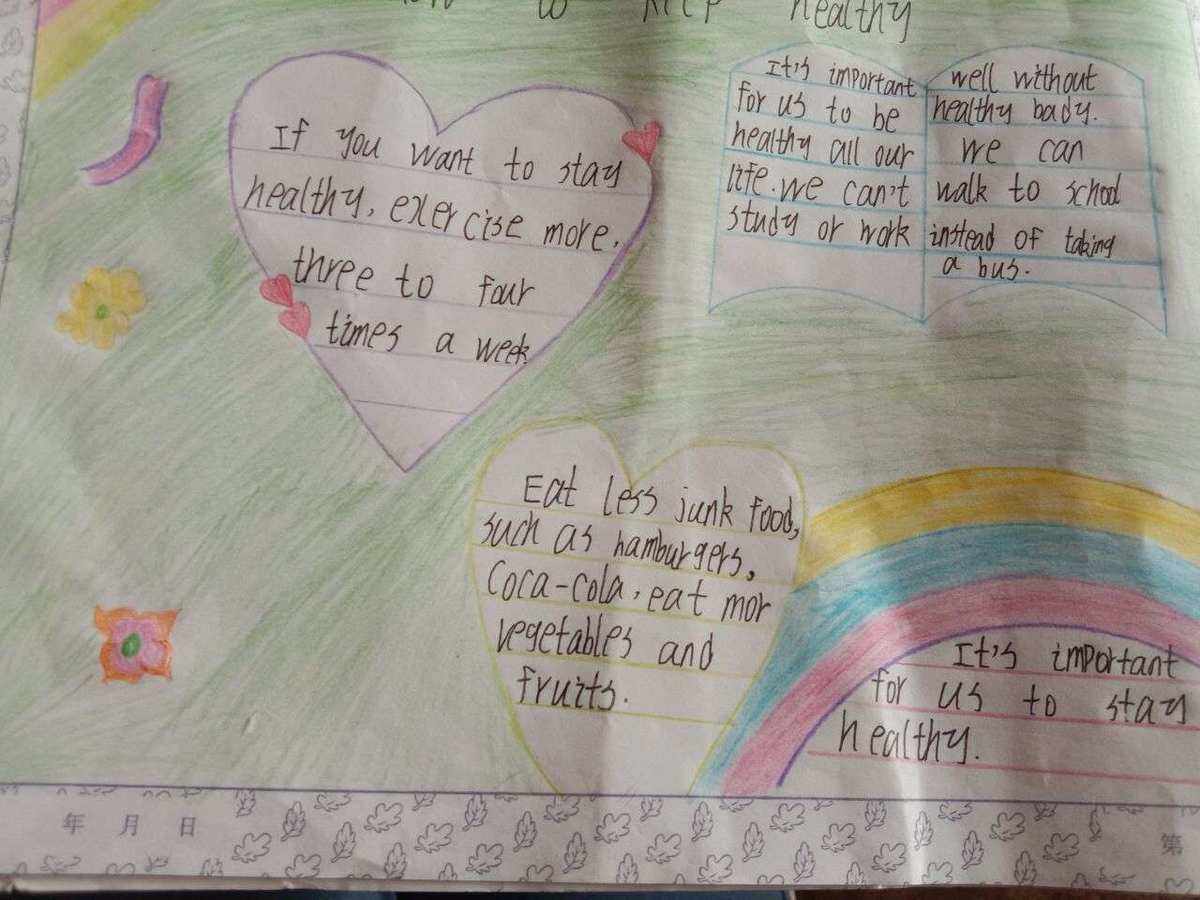 to keep healthy
If you want to stay
healthy, exercise more,
three to four
times a week
It's important
for us to be
healthy all our
life. we can't
study or work
well without
healthy bady.
we can
walk to school
instead of taking
a bus.
Eat less junk food,
such as hamburgers,
Coca-cola, eat mor
vegetables and
fruits.
It's important
for us to stay
healthy.
年 月 日
第